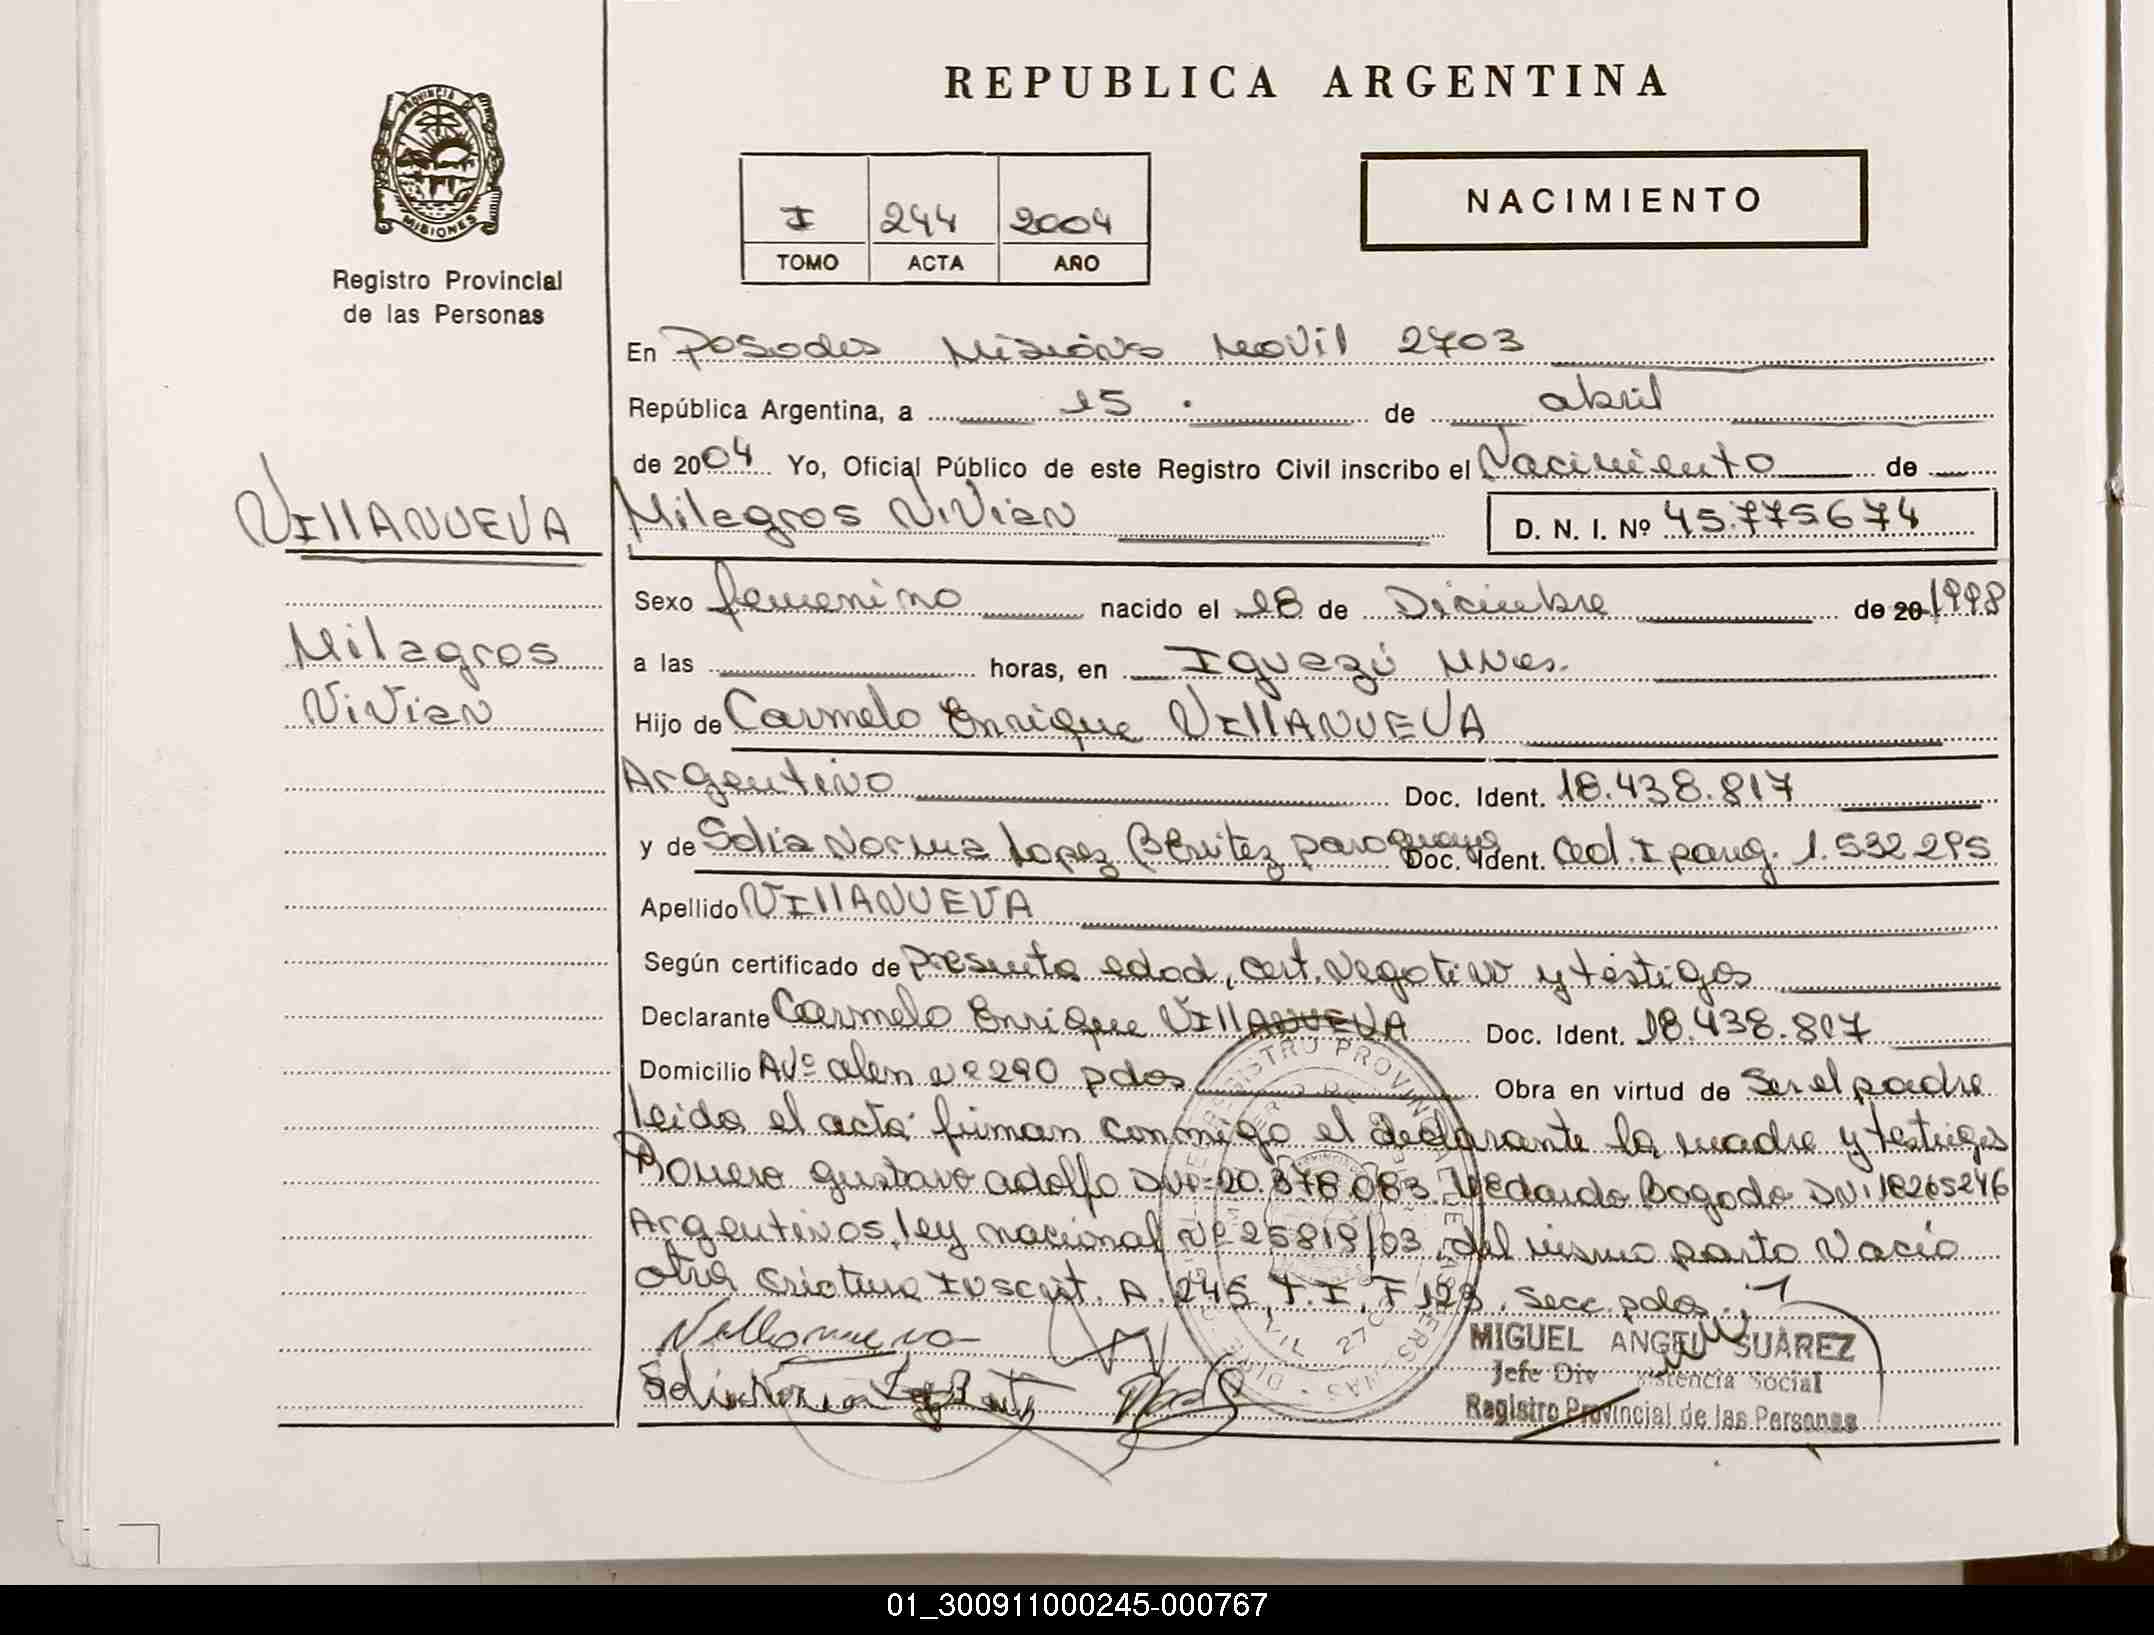 REPUBLICA ARGENTINA
PROVINCIA DE
MISIONES
Registro Provincial
de las Personas
NACIMIENTO
I 244 2004
TOMO ACTA AÑO
En Posadas Misiones Movil 2703
República Argentina, a 15 de abril
de 2004 Yo, Oficial Público de este Registro Civil inscribo el Nacimiento de
VIllANUEVA
Milagros ViVian D. N. I. Nº 45.775674
Sexo femenino nacido el 18 de Diciembre de 20 1998
Milagros
ViVian
a las horas, en Iguazú Mnes.
Hijo de Carmelo Enrique VIllANUEVA
Argentino Doc. Ident. 18.438.817
y de Norma Lopez Benitez paraguaya Doc. Ident. Ced. I parag. 1.532295
Apellido VIllANUEVA
Según certificado de presunta edad, cert. negativo y testigos
Declarante Carmelo Enrique VIllANUEVA Doc. Ident. 18.438.817
Domicilio Avº alem nº 290 pdas Obra en virtud de Ser el padre
leida el acta firman conmigo el declarante la madre y testigos
Romero gustavo adolfo DNI 20.378.083 Bogado DNI 18265246
Argentinos, ley nacional Nº 25819/03, del mismo parto Nacio
otra criatura Inscript. A. 245, T. I, F 123, Secc. pdas.
Villanueva
MIGUEL ANGEL SUÁREZ
Jefe Div Asistencia Social
Registro Provincial de las Personas
01_300911000245-000767